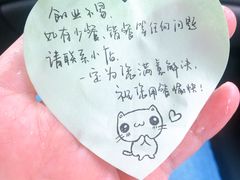 创业不易
如有少餐、错餐等任何问题
请联系小店,
一定为您满意解决,
祝您用餐愉快!